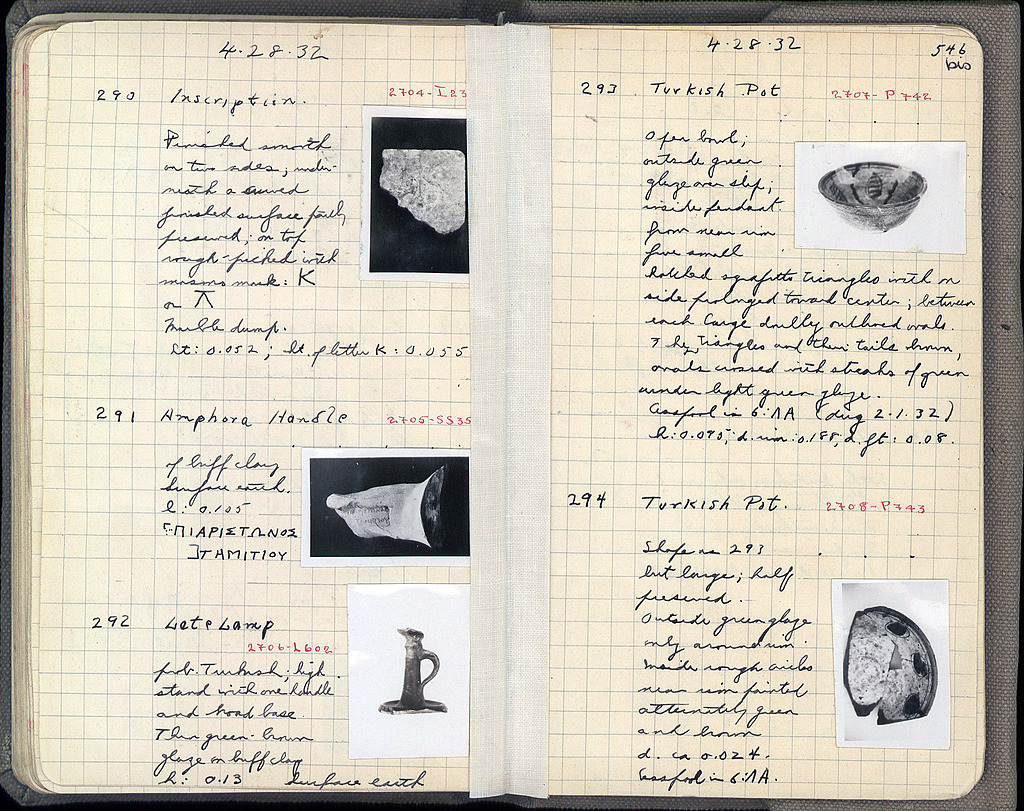 4·28·32
290 Inscription. 2704-I 23
Finished smooth
on two sides; under-
neath a curved
finished surface partly
preserved; on top
rough-picked with
masons mark: K
or
Marble dump.
Lt: 0.052; ht. of letter K: 0.055
291 Amphora Handle 2705-SS35
of buff clay
Surface earth.
l: 0.105
ΕΠΙΑΡΙΣΤΩΝΟΣ
ΤΑΜΙΤΙΟΥ
292 Late Lamp
2706-L602
prob. Turkish; high
stand with one handle
and broad base.
Thin green-brown
glaze on buff clay
h: 0.13 Surface earth
4·28·32
546
bis
293 Turkish Pot 2707-P 742
Open bowl;
outside green
glaze over slip;
inside pendant
from near rim
five small
hatched sgraffito triangles with on
side prolonged toward center; between
each large doubly outlined ovals.
triangles and their tails brown,
ovals crossed with streaks of green
under light green glaze.
Cesspool in 6:ΛΑ (dug 2·1·32)
h: 0.095; d. rim: 0.188, d. ft: 0.08.
294 Turkish Pot. 2708-P743
Shape as 293
but large; half
preserved.
Outside green glaze
only around rim
Inside rough circles
near rim painted
alternately green
and brown
d. ca 0.024.
Cesspool in 6:ΛΑ.